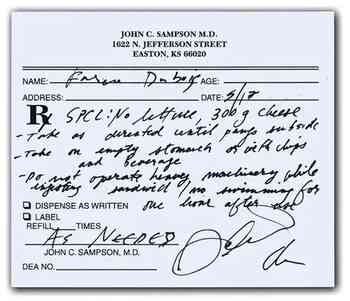 JOHN C. SAMPSON M.D.
1622 N. JEFFERSON STREET
EASTON, KS 66020
NAME: AGE:
ADDRESS: DATE: 5/17
Rx SPCL: No lettuce, 300 g cheese
- Take as directed until pangs subside
- Take on empty stomach or with chips
and beverage
- Do not operate heavy machinery while
enjoying sandwich, no swimming for
DISPENSE AS WRITTEN one hour after
LABEL
REFILL TIMES
AS NEEDED
JOHN C. SAMPSON, M.D.
DEA NO.